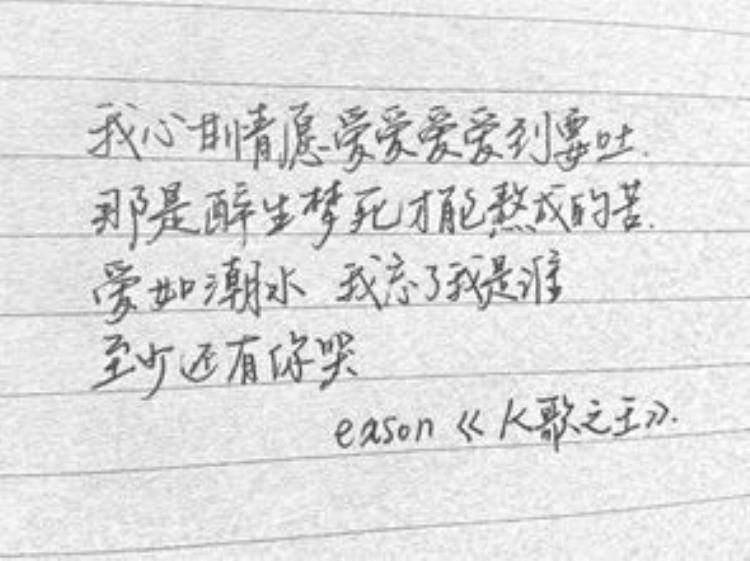 我心甘情愿爱爱爱爱到要吐.
那是醉生梦死才能熬成的苦.
爱如潮水 我忘了我是谁
至少还有你哭
eason《K歌之王》.